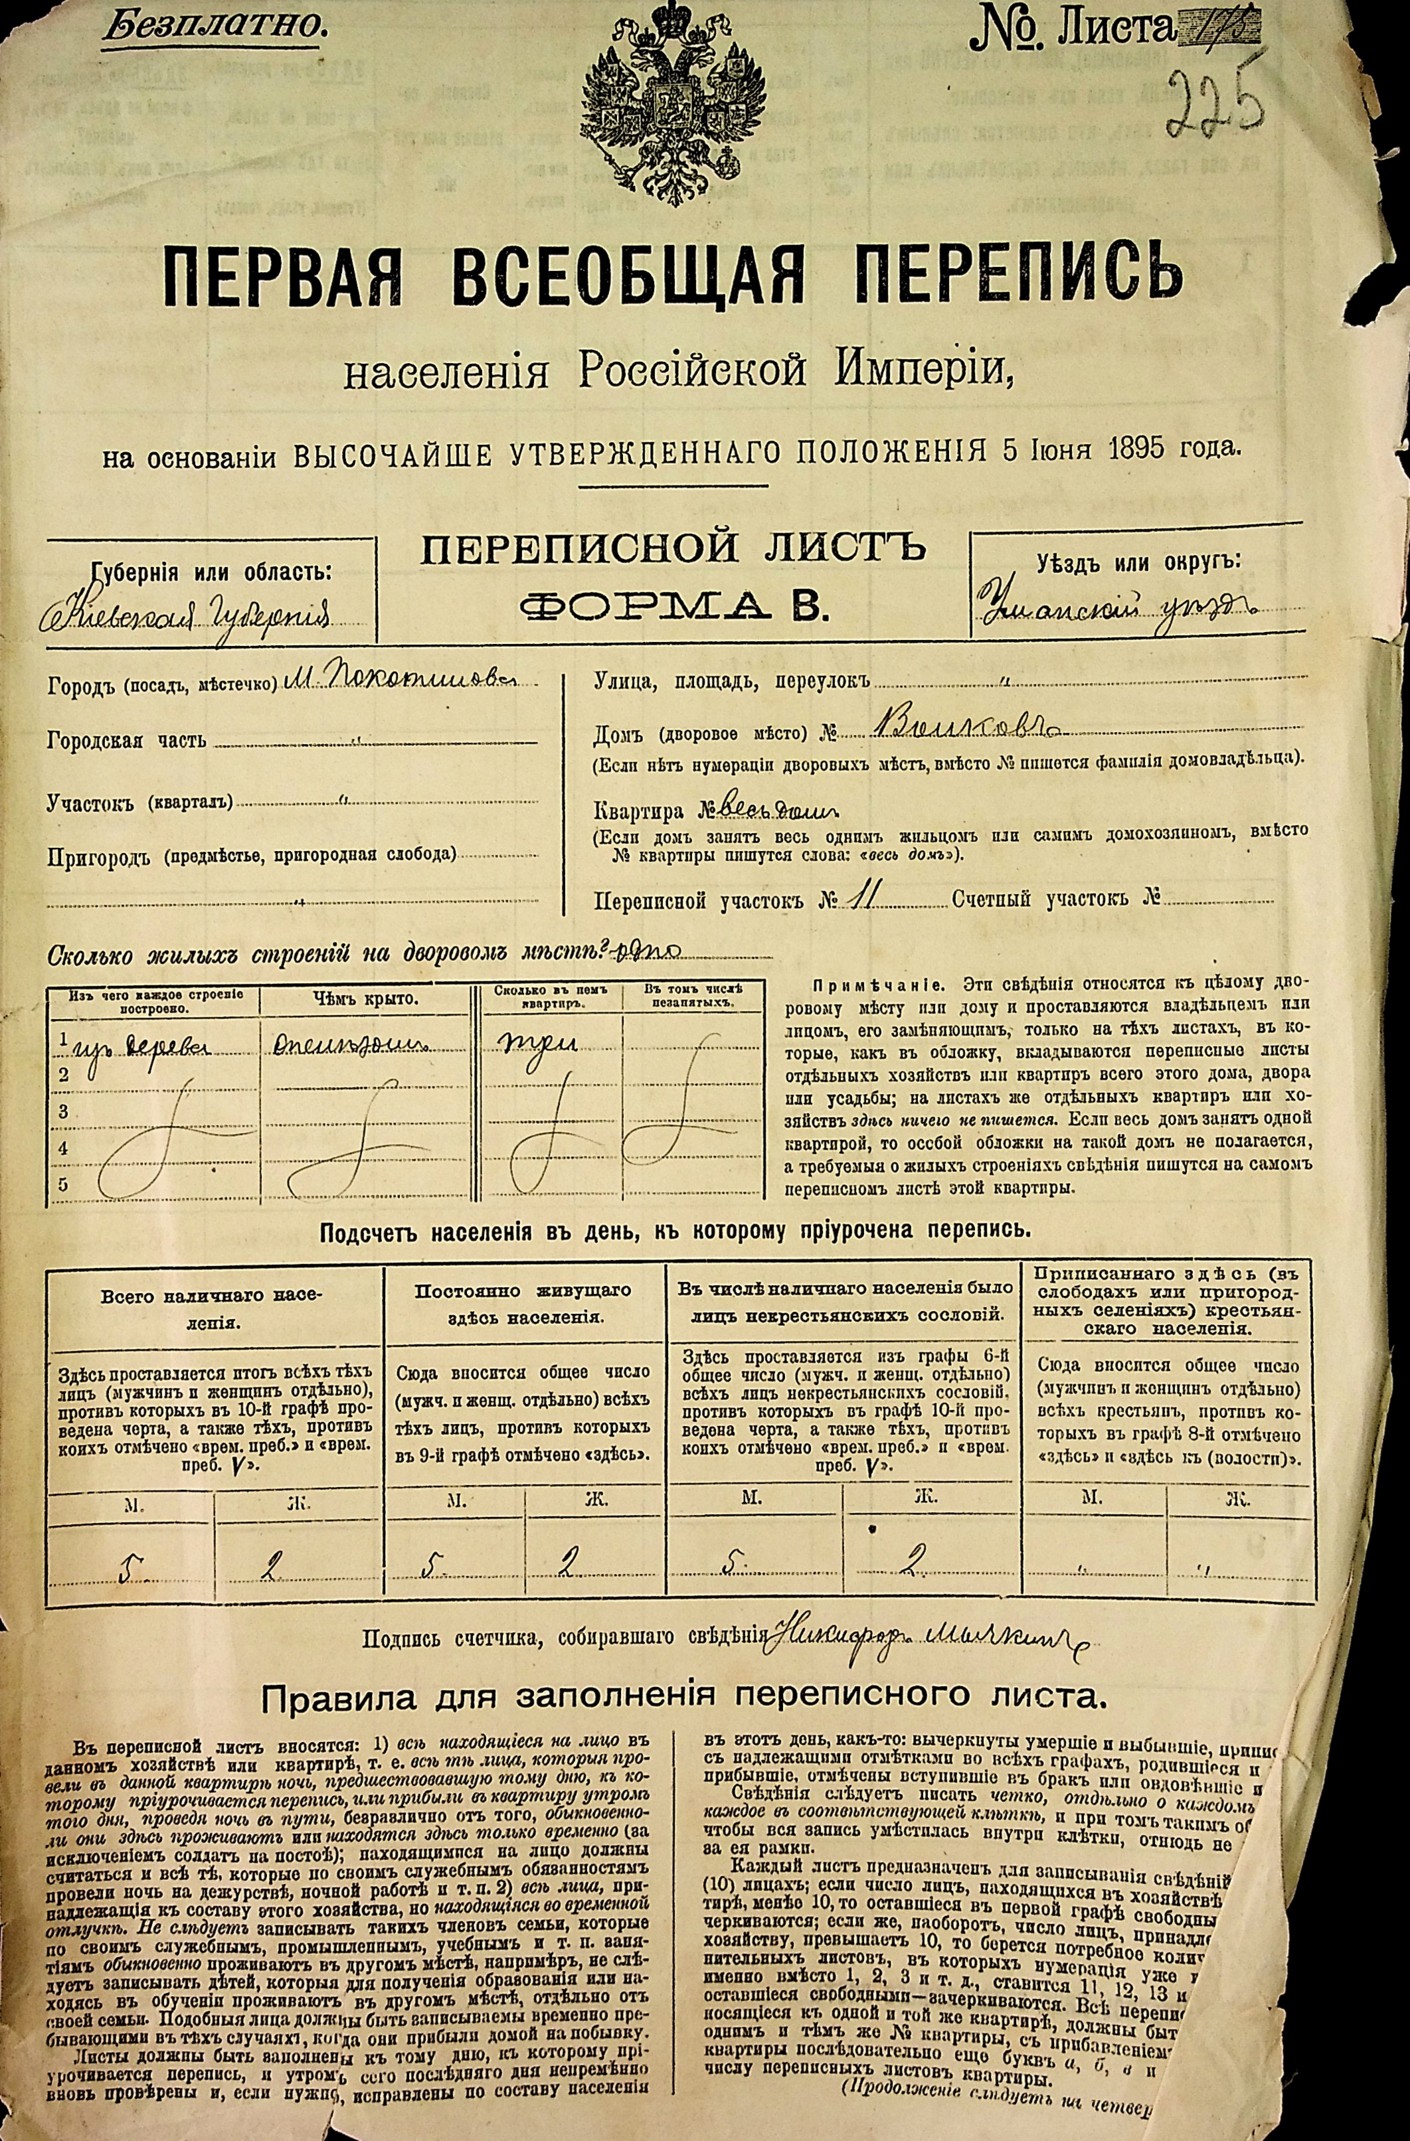 Безплатно.
№. Листа 175
225
ПЕРВАЯ ВСЕОБЩАЯ ПЕРЕПИСЬ
населенія Россійской Имперіи,
на основаніи ВЫСОЧАЙШЕ УТВЕРЖДЕННАГО ПОЛОЖЕНІЯ 5 Іюня 1895 года.
ПЕРЕПИСНОЙ ЛИСТЪ
ФОРМА В.
Губернія или область:
Кіевская Губернія
Уѣздъ или округъ:
Уманскій уѣздъ
Городъ (посадъ, мѣстечко) м. Покотилова
Городская часть "
Участокъ (кварталъ) "
Пригородъ (предмѣстье, пригородная слобода)
"
Улица, площадь, переулокъ "
Домъ (дворовое мѣсто) №
(Если нѣтъ нумераціи дворовыхъ мѣстъ, вмѣсто № пишется фамилія домовладѣльца).
Квартира № весь домъ
(Если домъ занятъ весь однимъ жильцомъ или самимъ домохозяиномъ, вмѣсто
№ квартиры пишутся слова: «весь домъ»).
Переписной участокъ № 11 Счетный участокъ №
Сколько жилыхъ строеній на дворовомъ мѣстѣ? одно
Изъ чего каждое строеніе
построено.
Чѣмъ крыто.
Сколько въ немъ
квартиръ.
Въ томъ числѣ
незанятыхъ.
1 изъ дерева три
2
3
4
5
Примѣчаніе. Эти свѣдѣнія относятся къ цѣлому дво-
ровому мѣсту или дому и проставляются владѣльцемъ или
лицомъ, его замѣняющимъ, только на тѣхъ листахъ, въ ко-
торые, какъ въ обложку, вкладываются переписные листы
отдѣльныхъ хозяйствъ или квартиръ всего этого дома, двора
или усадьбы; на листахъ же отдѣльныхъ квартиръ или хо-
зяйствъ здѣсь ничего не пишется. Если весь домъ занятъ одной
квартирой, то особой обложки на такой домъ не полагается,
а требуемыя о жилыхъ строеніяхъ свѣдѣнія пишутся на самомъ
переписномъ листѣ этой квартиры.
Подсчетъ населенія въ день, къ которому пріурочена перепись.
Всего наличнаго насе-
ленія.
Здѣсь проставляется итогъ всѣхъ тѣхъ
лицъ (мужчинъ и женщинъ отдѣльно),
противъ которыхъ въ 10-й графѣ про-
ведена черта, а также тѣхъ, противъ
коихъ отмѣчено «врем. преб.» и «врем.
преб. V».
Постоянно живущаго
здѣсь населенія.
Сюда вносится общее число
(мужч. и женщ. отдѣльно) всѣхъ
тѣхъ лицъ, противъ которыхъ
въ 9-й графѣ отмѣчено «здѣсь».
Въ числѣ наличнаго населенія было
лицъ некрестьянскихъ сословій.
Здѣсь проставляется изъ графы 6-й
общее число (мужч. и женщ. отдѣльно)
всѣхъ лицъ некрестьянскихъ сословій,
противъ которыхъ въ графѣ 10-й про-
ведена черта, а также тѣхъ, противъ
коихъ отмѣчено «врем. преб.» и «врем.
преб. V».
Приписаннаго здѣсь (въ
слободахъ или пригород-
ныхъ селеніяхъ) крестьян-
скаго населенія.
Сюда вносится общее число
(мужчинъ и женщинъ отдѣльно)
всѣхъ крестьянъ, противъ ко-
торыхъ въ графѣ 8-й отмѣчено
«здѣсь» и «здѣсь къ (волости)».
М. Ж. М. Ж. М. Ж. М. Ж.
5. 2 5. 2 5. 2. " "
Подпись счетчика, собиравшаго свѣдѣнія Никифоръ Мычкинъ
Правила для заполненія переписного листа.
Въ переписной листъ вносятся: 1) всѣ находящіеся на лицо въ
данномъ хозяйствѣ или квартирѣ, т. е. всѣ тѣ лица, которыя про-
вели въ данной квартирѣ ночь, предшествовавшую тому дню, къ ко-
торому пріурочивается перепись, или прибыли въ квартиру утромъ
того дня, проведя ночь въ пути, безразлично отъ того, обыкновенно-
ли они здѣсь проживаютъ или находятся здѣсь только временно (за
исключеніемъ солдатъ на постоѣ); находящимися на лицо должны
считаться и всѣ тѣ, которые по своимъ служебнымъ обязанностямъ
провели ночь на дежурствѣ, ночной работѣ и т. п. 2) всѣ лица, при-
надлежащія къ составу этого хозяйства, но находящіяся во временной
отлучкѣ. Не слѣдуетъ записывать такихъ членовъ семьи, которые
по своимъ служебнымъ, промышленнымъ, учебнымъ и т. п. заня-
тіямъ обыкновенно проживаютъ въ другомъ мѣстѣ, напримѣръ, не слѣ-
дуетъ записывать дѣтей, которыя для полученія образованія или на-
ходясь въ обученіи проживаютъ въ другомъ мѣстѣ, отдѣльно отъ
своей семьи. Подобныя лица должны быть записываемы временно пре-
бывающими въ тѣхъ случаяхъ, когда они прибыли домой на побывку.
Листы должны быть заполнены къ тому дню, къ которому прі-
урочивается перепись, и утромъ сего послѣдняго дня непремѣнно
вновь провѣрены и, если нужно, исправлены по составу населенія
въ этотъ день, какъ-то: вычеркнуты умершіе и выбывшіе,
съ надлежащими отмѣтками во всѣхъ графахъ, родившіеся и
прибывшіе, отмѣчены вступившіе въ бракъ или овдовѣвшіе и
Свѣдѣнія слѣдуетъ писать четко, отдѣльно о каждомъ
каждое въ соотвѣтствующей клѣткѣ, и при томъ такимъ
чтобы вся запись умѣстилась внутри клѣтки, отнюдь не
за ея рамки.
Каждый листъ предназначенъ для записыванія свѣдѣній
(10) лицахъ; если число лицъ, находящихся въ хозяйствѣ
тирѣ, менѣе 10, то оставшіеся въ первой графѣ свободны
черкиваются; если же, наоборотъ, число лицъ, принадле
хозяйству, превышаетъ 10, то берется потребное колич
нительныхъ листовъ, въ которыхъ нумерація уже
именно вмѣсто 1, 2, 3 и т. д., ставится 11, 12, 13 и
оставшіеся свободными—зачеркиваются. Всѣ перепис
носящіеся къ одной и той же квартирѣ, должны быт
однимъ и тѣмъ же № квартиры, съ прибавленіемъ
квартиры послѣдовательно еще буквъ а, б, в и
числу переписныхъ листовъ квартиры.
(Продолженіе слѣдуетъ на четвер